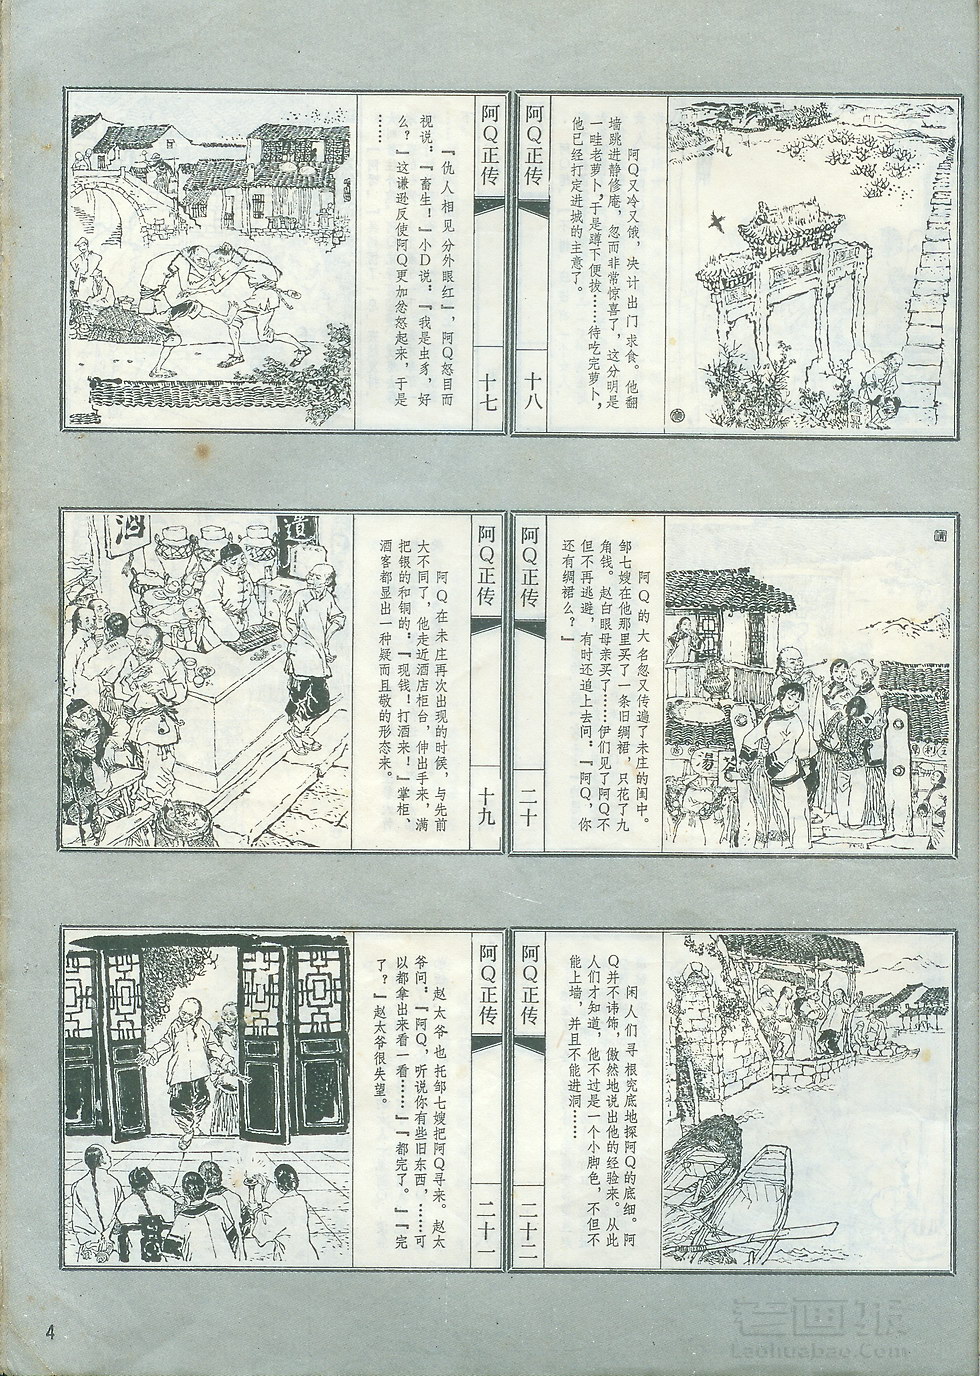 阿Q正传
十七
『仇人相见分外眼红』，阿Q怒目而
视说：『畜生！』小D说：『我是虫豸，好
么？』这谦逊反使阿Q更加忿怒起来，于是
……
阿Q正传
十八
阿Q又冷又饿，决计出门求食。他翻
墙跳进静修庵，忽而非常惊喜了，这分明是
一畦老萝卜，于是蹲下便拔……待吃完萝卜，
他已经打定进城的主意了。
阿Q正传
十九
阿Q在未庄再次出现的时候，与先前
大不同了，他走近酒店柜台，伸出手来，满
把银的和铜的：『现钱！打酒来！』掌柜、
酒客都显出一种疑而且敬的形态来。
酒
道
阿Q正传
二十
阿Q的大名忽又传遍了未庄的闺中。
邹七嫂在他那里买了一条旧绸裙，只花了九
角钱。赵白眼母亲买了……伊们见了阿Q不
但不再逃避，有时还追上去问：『阿Q，你
还有绸裙么？』
湯
阿Q正传
二十一
赵太爷也托邹七嫂把阿Q寻来。赵太
爷问：『阿Q，听说你有些旧东西，……可
以都拿出来看一看……』『都完了。』『完
了？』赵太爷很失望。
阿Q正传
二十二
闲人们寻根究底地探阿Q的底细。阿
Q并不讳饰，傲然地说出他的经验来。从此
人们才知道，他不过是一个小脚色，不但不
能上墙，并且不能进洞……
4
老画报
Laohuabao.Com